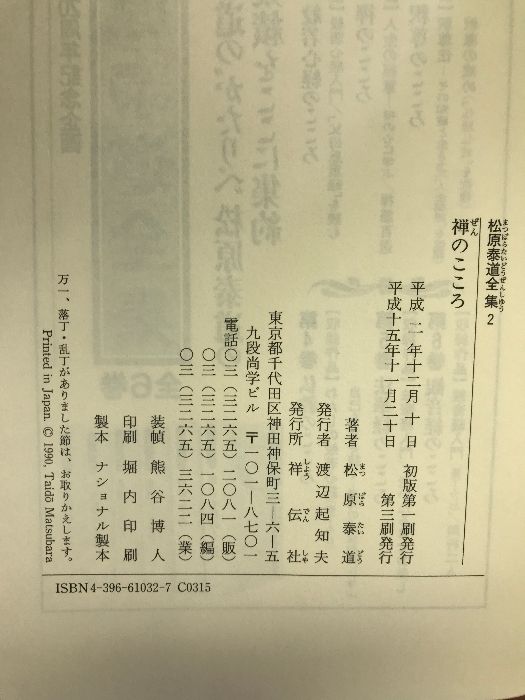 松原泰道全集2
まつばらたいどうぜんしゅう
禅のこころ
ぜん
平成二年十二月十日　初版第一刷発行
平成十五年十一月二十日　第三刷発行
著者　松原泰道
まつばらたいどう
発行者　渡辺起知夫
発行所　祥伝社
しょうでんしゃ
東京都千代田区神田神保町三―六―五
九段尚学ビル　〒一〇一―八七〇一
電話〇三（三二六五）二〇八一（販）
〇三（三二六五）一〇八四（編）
〇三（三二六五）三六二二（業）
装幀　熊谷博人
印刷　堀内印刷
製本　ナショナル製本
万一、落丁・乱丁がありました節は、お取りかえします。
Printed in Japan. © 1990, Taidō Matsubara
ISBN4-396-61032-7 C0315